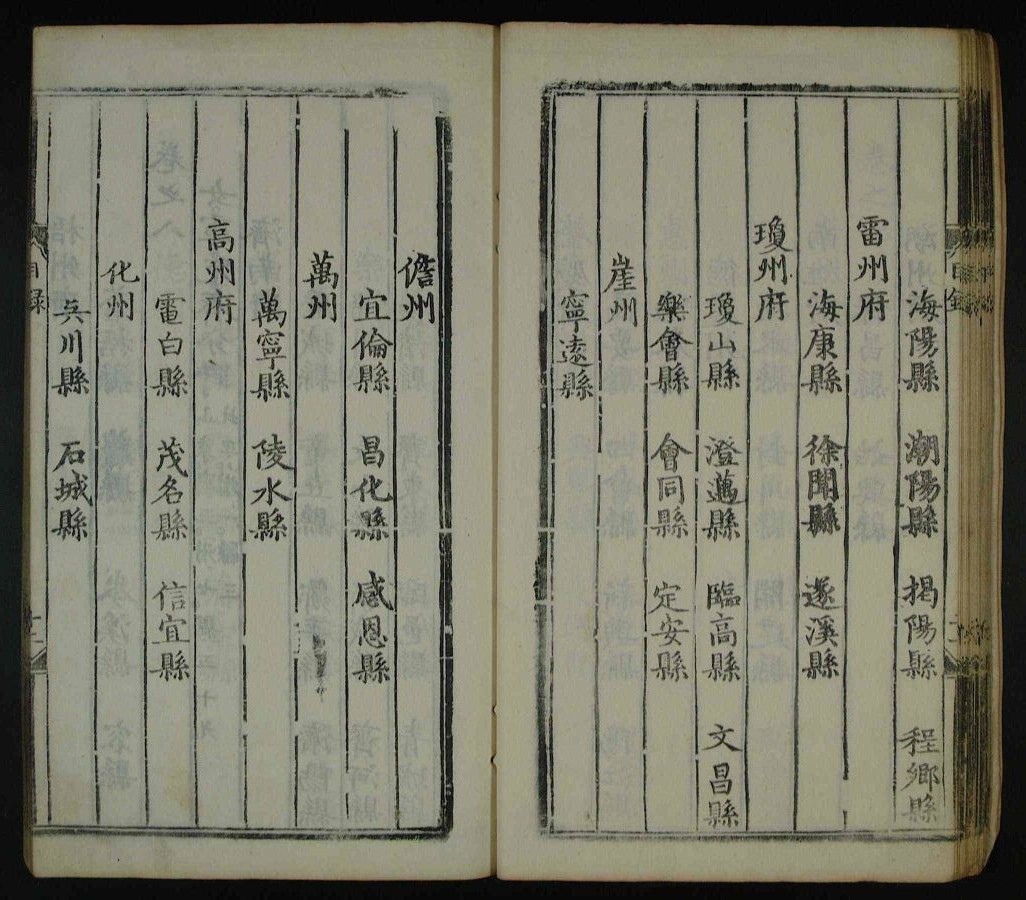 海陽縣 潮陽縣 揭陽縣 程鄉縣
雷州府
海康縣 徐聞縣 遂溪縣
瓊州府
瓊山縣 澄邁縣 臨高縣 文昌縣
樂會縣 會同縣 定安縣
崖州
寧遠縣
儋州
宜倫縣 昌化縣 感恩縣
萬州
萬寧縣 陵水縣
高州府
電白縣 茂名縣 信宜縣
化州
吳川縣 石城縣
目錄